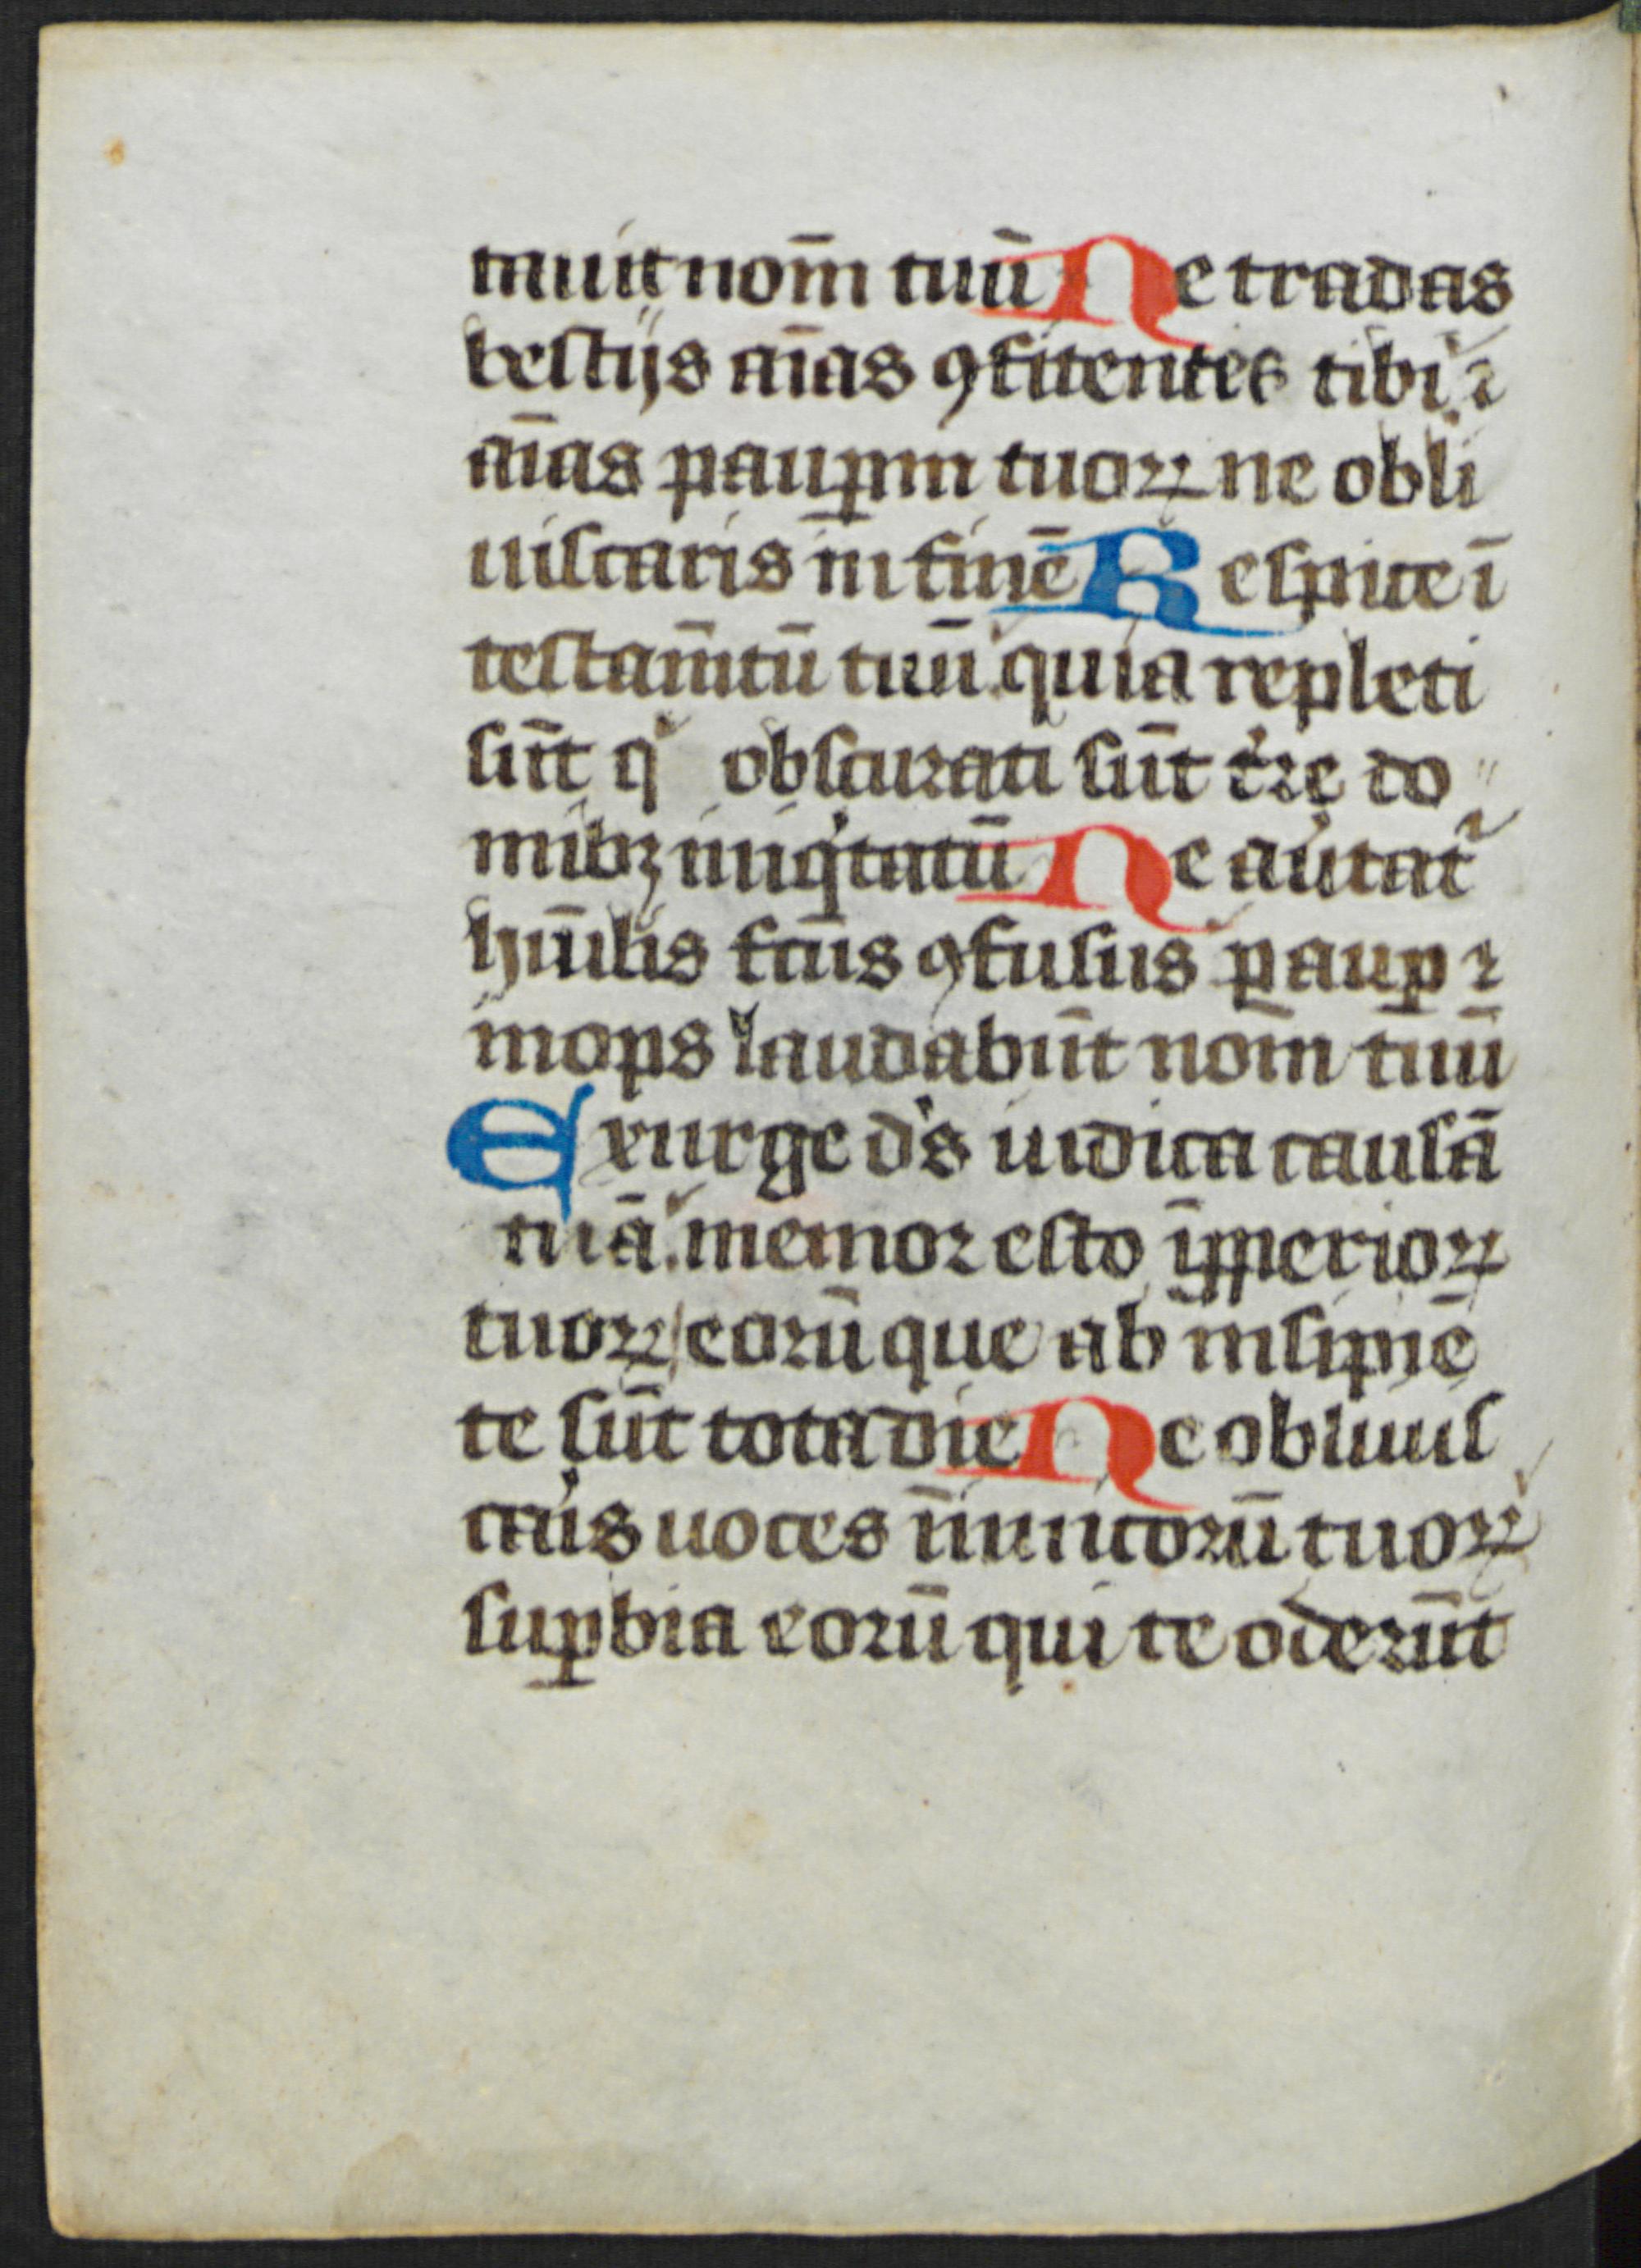 tauit nom̄ tuū Ne tradas
bestijs aīas ꝯfitentes tibi ⁊
aīas pauꝑum tuoꝝ ne obli
uiscaris in finē Respice ī
testam̄tū tuū. quia repleti
sūt qͥ obscurati sūt t̄re do
mibꝫ iniqͥtatū Ne auͥtat᷑
hūilis fc̄us ꝯfusus pauꝑ ⁊
inops laudabūt nom̄ tuū
Exurge dˢ iudica causā
tuā. memor esto īpperioꝝ
tuoꝝ eorū que ab insipiē
te sūt tota die Ne obliuis
caͥs uoces īimicorū tuoꝝ
suꝑbia eorū qui te oderūt